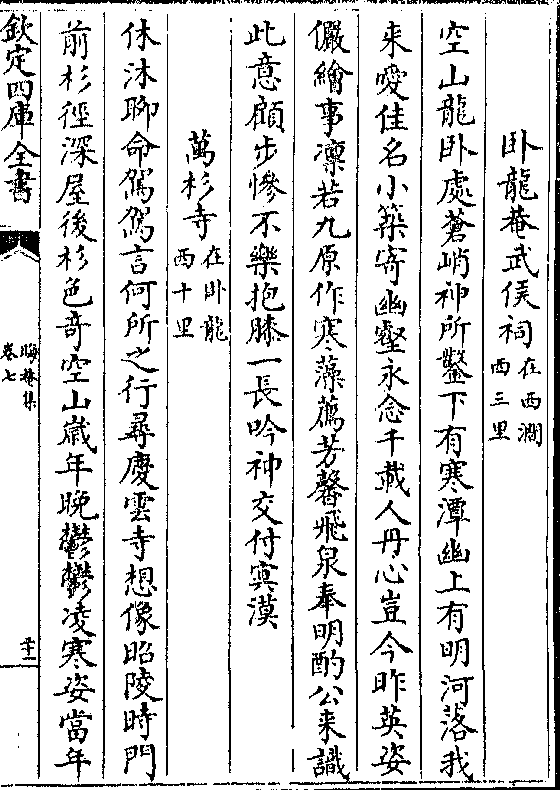 卧龍菴武侯祠在西澗西三里
空山龍卧處蒼峭神所鑿下有寒潭幽上有明河落我
来愛佳名小築寄幽壑永念千載人丹心豈今昨英姿
儼繪事凛若九原作寒藻薦芳馨飛泉奉明酌公来識
此意顧步慘不樂抱膝一長吟神交付寞漠
萬杉寺在卧龍西十里
休沐聊命駕駕言何所之行尋慶雲寺想像昭陵時門
前杉徑深屋後杉色竒空山嵗年晚鬱鬱凌寒姿當年
欽定四庫全書
晦菴集
卷七